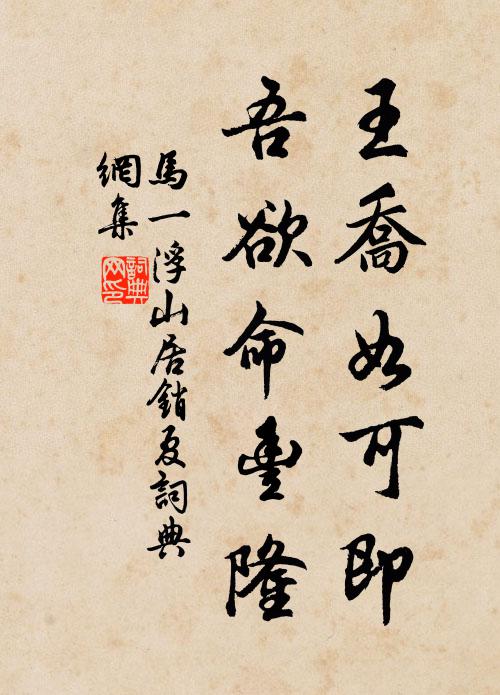 王喬如可即
吾欲命豐隆
馬一浮山居銷夏詞典
網集
詞典
网印